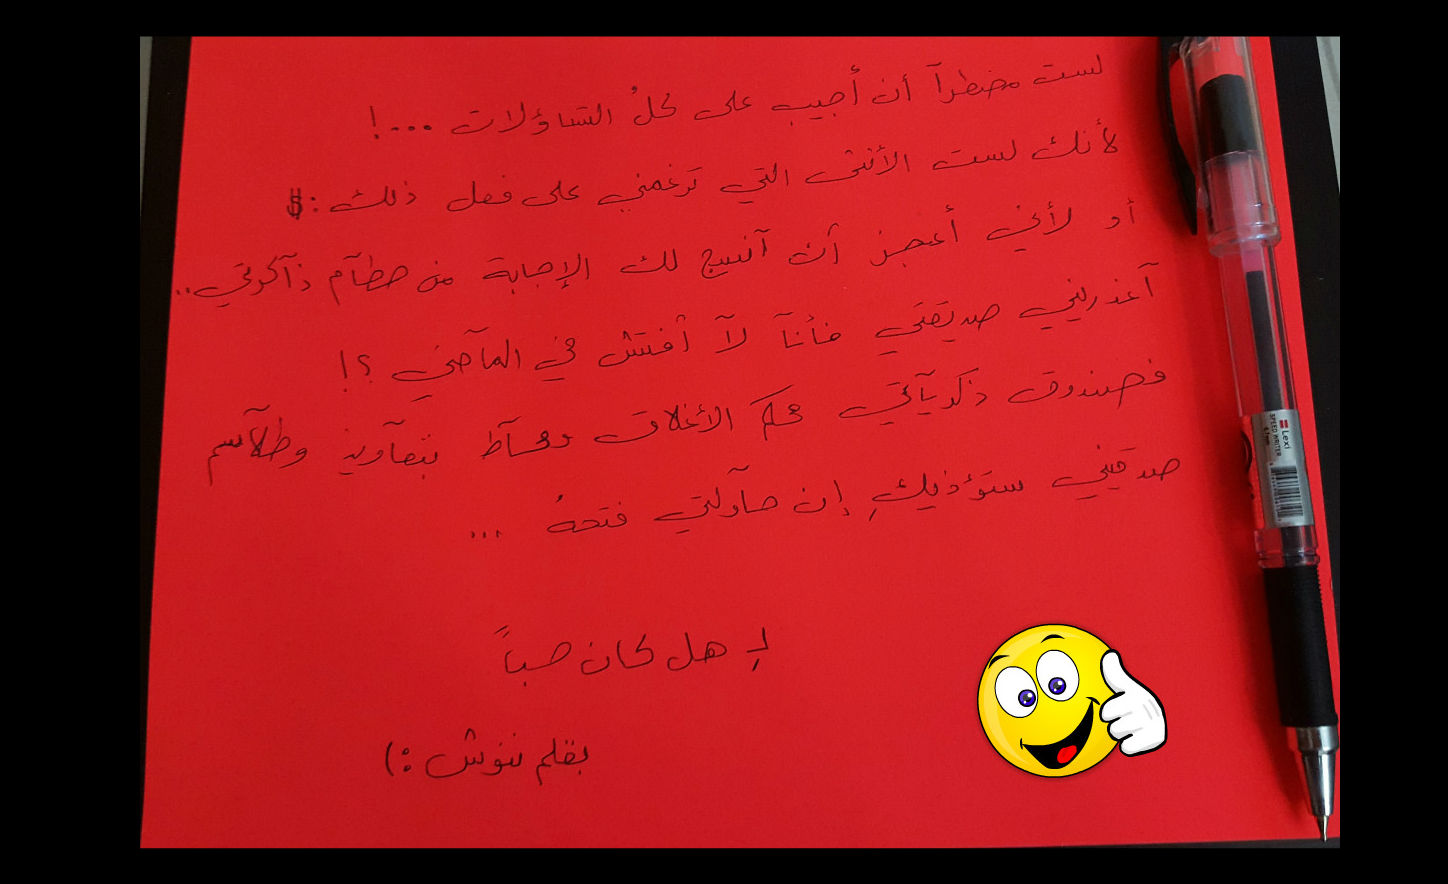 لست مضطرآ أن أجيب على كلُ التساؤلات ...!
لأنك لست الأنثى التي ترغمني على فعل ذلك :$
أو لأني أعجز أن آنسج لك الإجابة من حطآم ذآكرتي..
آعذريني صديقتي فأنآ لآ أفتش في المآضي ؟!
فصندوق ذكريآتي محكم الأغلاق ومحآط بتعآويذ وطلآسم
صدقيني ستؤذيكِ إن حآولتي فتحهُ ...
لِـ هل كان حباً
بقلم ننوش :)
Lexi
SPEED WRITER